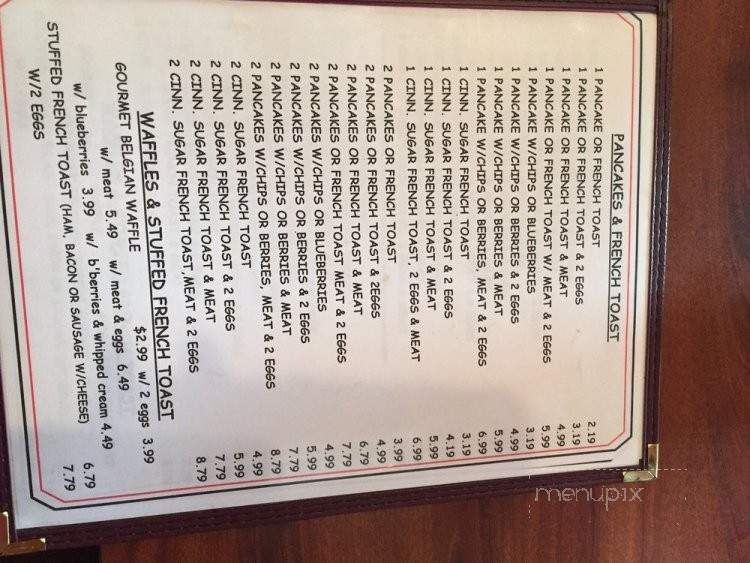 PANCAKES & FRENCH TOAST
1 PANCAKE OR FRENCH TOAST 2.19
1 PANCAKE OR FRENCH TOAST & 2 EGGS 3.19
1 PANCAKE OR FRENCH TOAST & MEAT 4.99
1 PANCAKE OR FRENCH TOAST W/ MEAT & 2 EGGS 5.99
1 PANCAKE W/CHIPS OR BLUEBERRIES 3.19
1 PANCAKE W/CHIPS OR BERRIES & 2 EGGS 4.99
1 PANCAKE W/CHIPS OR BERRIES & MEAT 5.99
1 PANCAKE W/CHIPS OR BERRIES, MEAT & 2 EGGS 6.99
1 CINN. SUGAR FRENCH TOAST 3.19
1 CINN. SUGAR FRENCH TOAST & 2 EGGS 4.19
1 CINN. SUGAR FRENCH TOAST & MEAT 5.99
1 CINN. SUGAR FRENCH TOAST, 2 EGGS & MEAT 6.99
2 PANCAKES OR FRENCH TOAST 3.99
2 PANCAKES OR FRENCH TOAST & 2EGGS 4.99
2 PANCAKES OR FRENCH TOAST & MEAT 6.79
2 PANCAKES OR FRENCH TOAST MEAT & 2 EGGS 7.79
2 PANCAKES W/CHIPS OR BLUEBERRIES 4.99
2 PANCAKES W/CHIPS OR BERRIES & 2 EGGS 5.99
2 PANCAKES W/CHIPS OR BERRIES & MEAT 7.79
2 PANCAKES W/CHIPS OR BERRIES, MEAT & 2 EGGS 8.79
2 CINN. SUGAR FRENCH TOAST 4.99
2 CINN. SUGAR FRENCH TOAST & 2 EGGS 5.99
2 CINN. SUGAR FRENCH TOAST & MEAT 7.79
2 CINN. SUGAR FRENCH TOAST,MEAT & 2 EGGS 8.79
WAFFLES & STUFFED FRENCH TOAST
GOURMET BELGIAN WAFFLE $2.99 w/ 2 eggs 3.99
w/ meat 5.49 w/ meat & eggs 6.49
w/ blueberries 3.99 w/ b'berries & whipped cream 4.49
STUFFED FRENCH TOAST (HAM, BACON OR SAUSAGE W/CHEESE) 6.79
W/2 EGGS 7.79
menupix